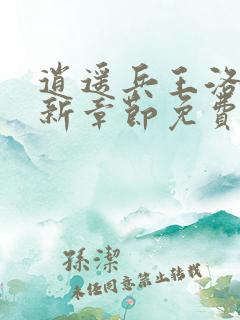 逍遥兵王洛
新章節免費
孫潔
未任同意禁止转载